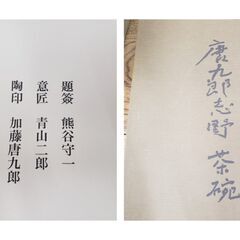 題簽 熊谷守一
意匠 青山二郎
陶印 加藤唐九郎
唐九郎志野 茶碗